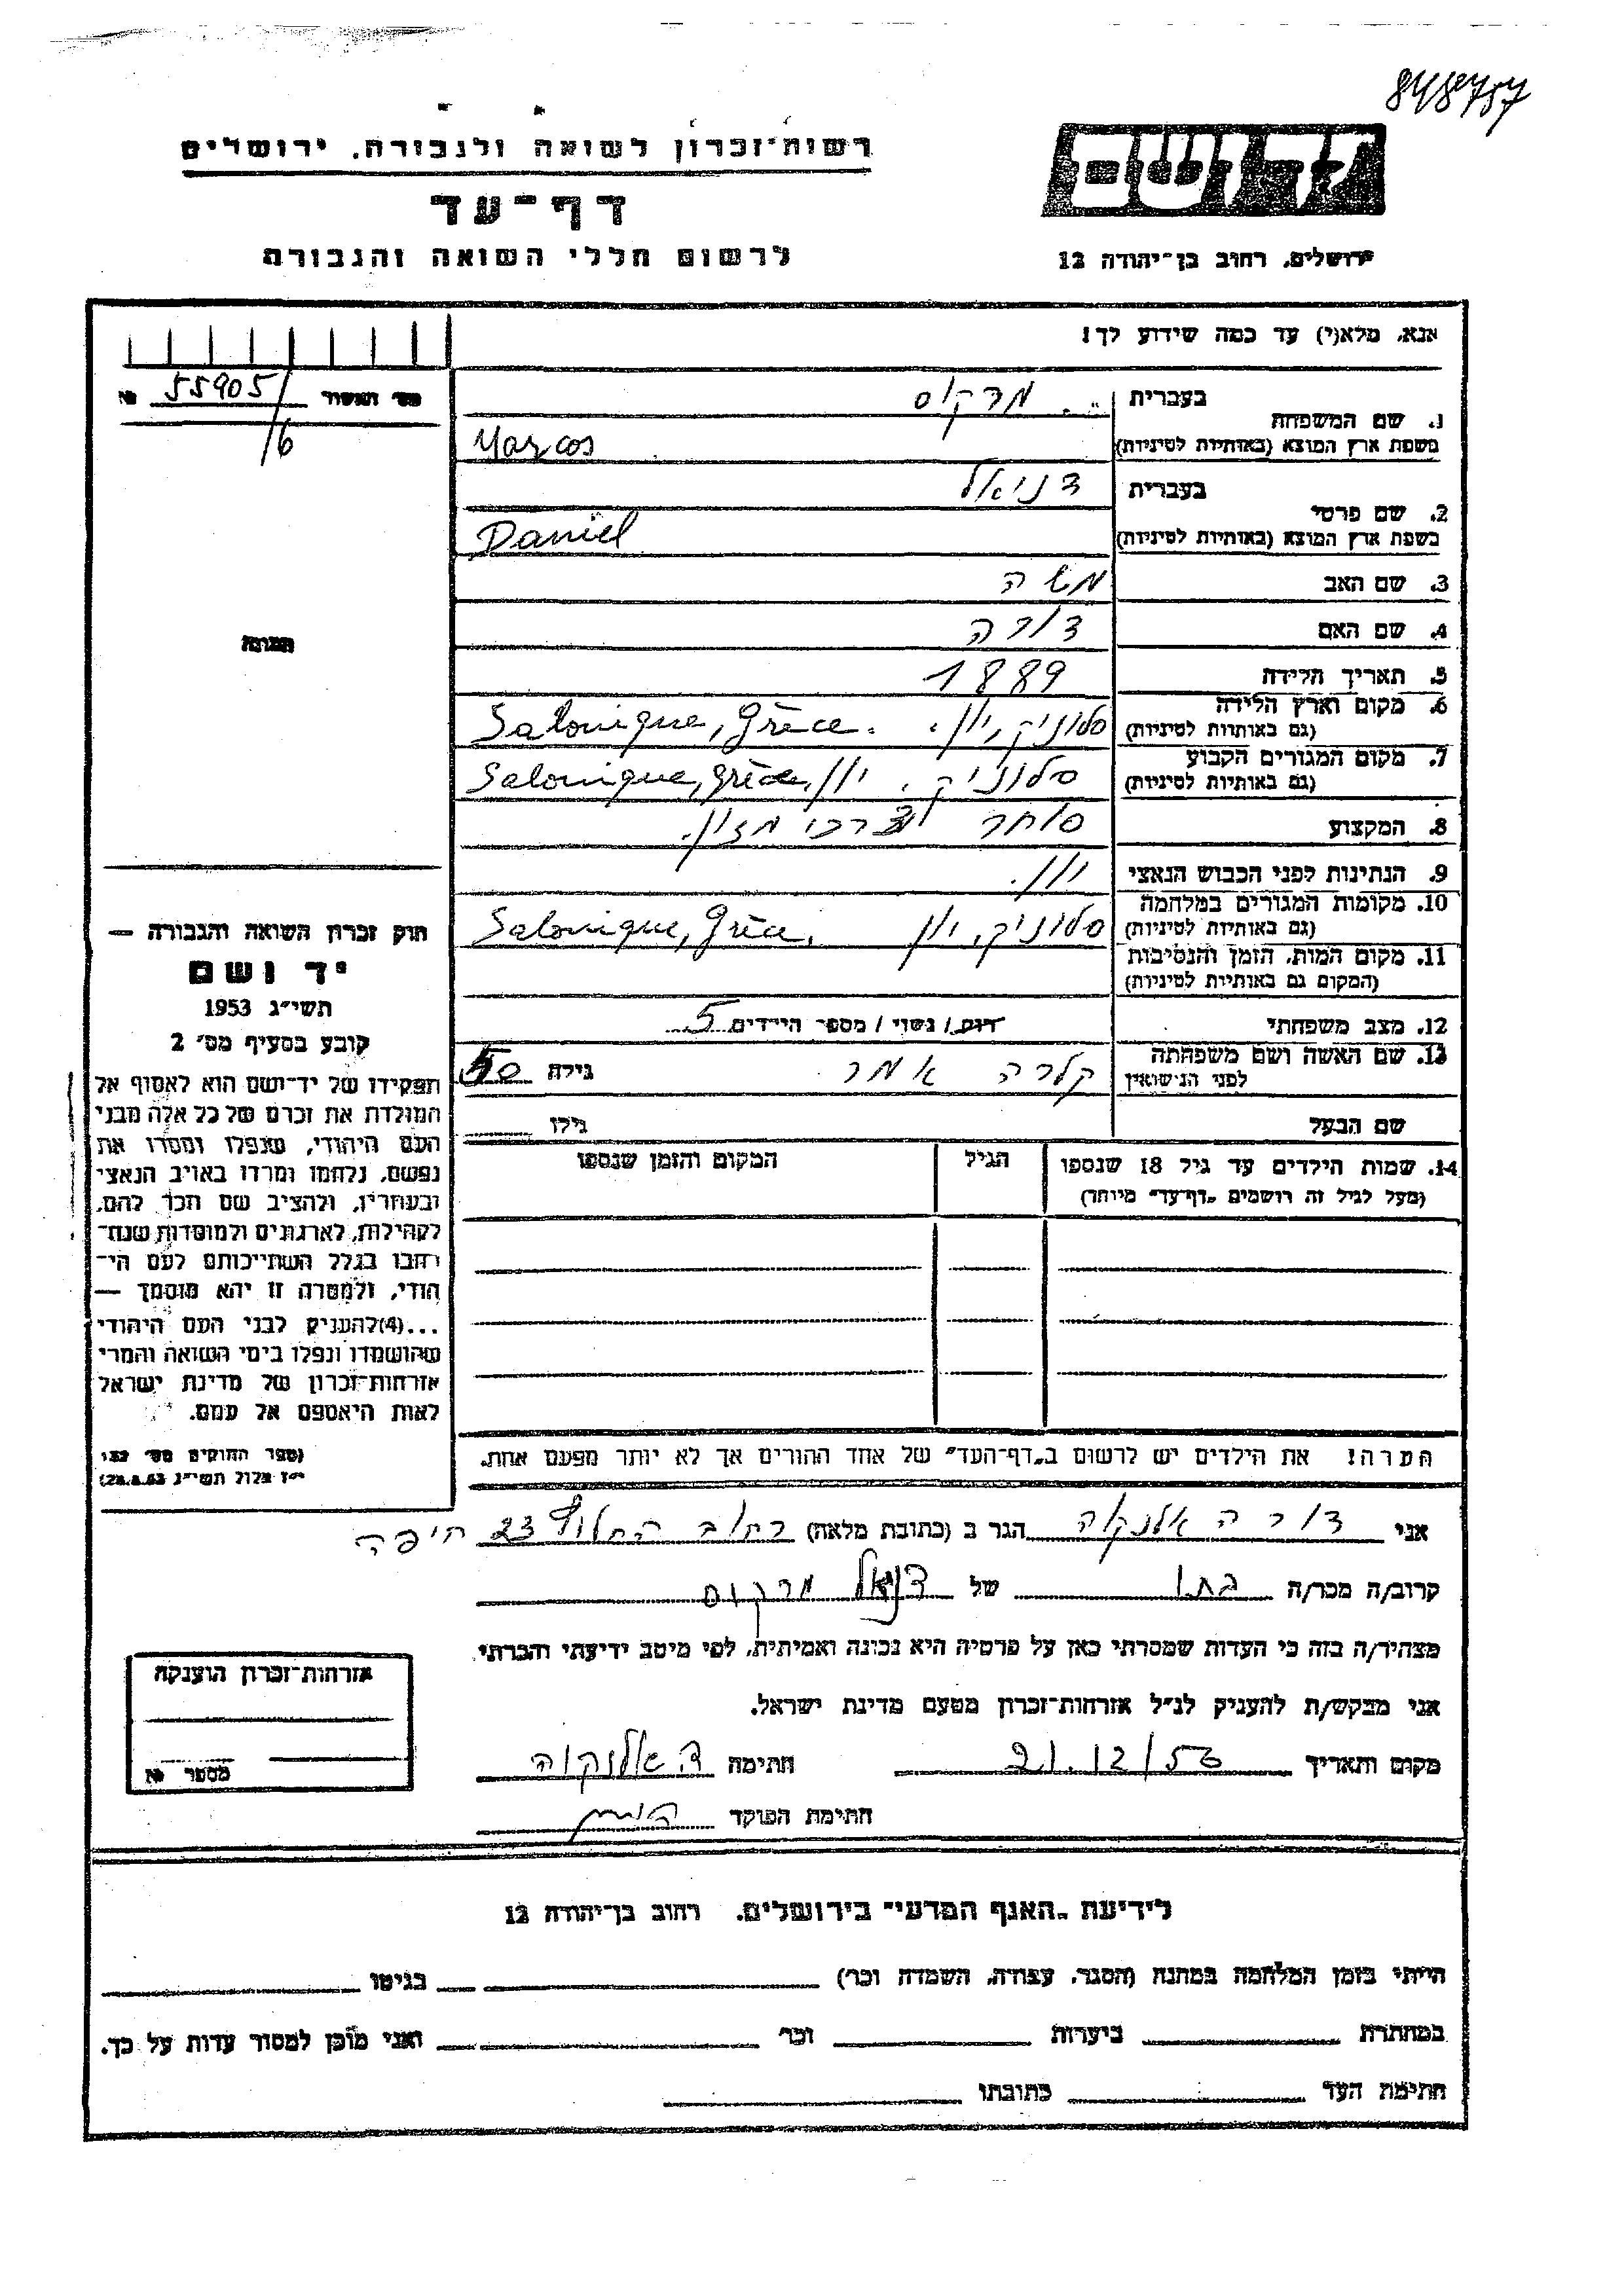 848757
רשות־זכרון לשואה ולגבורה. ירושלים
דף־עד
לרשום חללי השואה והגבורה
יד ושם
ירושלים, רחוב בן־יהודה 12
אנא, מלא(י) עד כמה שידוע לך!
№ 55905/
16
תמונה
1. שם המשפחה
בעברית מרקוס
בשפת ארץ המוצא (באותיות לטיניות) Marcos
2. שם פרטי
בעברית דניאל
בשפת ארץ המוצא (באותיות לטיניות) Daniel
3. שם האב משה
4. שם האם דורה
5. תאריך הלידה 1889
6. מקום וארץ הלידה
(גם באותיות לטיניות) סלוניק, יון. Salonique, Grèce.
7. מקום המגורים הקבוע
(גם באותיות לטיניות) סלוניק, יון, Salonique, Grèce,
8. המקצוע סוחר וצרכי מזון.
9. הנתינות לפני הכבוש הנאצי יון.
10. מקומות המגורים במלחמה
(גם באותיות לטיניות) סלוניק, יון Salonique, Grèce,
11. מקום המות, הזמן והנסיבות
(המקום גם באותיות לטיניות)
12. מצב משפחתי רווק / נשוי / מספר הילדים 5
13. שם האשה ושם משפחתה
לפני הנישואין קלרה אמר גילה 50
שם הבעל גילו
14. שמות הילדים עד גיל 18 שנספו
(מעל לגיל זה רושמים „דף־עד״ מיוחד)
הגיל
המקום והזמן שנספו
הערה! את הילדים יש לרשום ב„דף־העד״ של אחד ההורים אך לא יותר מפעם אחת.
חוק זכרון השואה והגבורה —
יד ושם
תשי״ג 1953
קובע בסעיף מס׳ 2
תפקידו של יד־ושם הוא לאסוף אל
המולדת את זכרם של כל אלה מבני
העם היהודי, שנפלו ומסרו את
נפשם, נלחמו ומרדו באויב הנאצי
ובעוזריו, ולהציב שם וזכר להם,
לקהילות, לארגונים ולמוסדות שנח־
רבו בגלל השתייכותם לעם הי־
הודי, ולמטרה זו יהא מוסמך —
...(4) להעניק לבני העם היהודי
שהושמדו ונפלו בימי השואה והמרי
אזרחות־זכרון של מדינת ישראל
לאות היאספם אל עמם.
(ספר החוקים מס׳ 132
י״ז אלול תשי״ג 28.8.53)
אני דורה אלנקוה הגר ב (כתובת מלאה) רחוב החלוץ 23 חיפה
קרוב/ה מכר/ה בתו של דניאל מרקוס
מצהיר/ה בזה כי העדות שמסרתי כאן על פרטיה היא נכונה ואמיתית, לפי מיטב ידיעתי והכרתי.
אני מבקש/ת להעניק לנ״ל אזרחות־זכרון מטעם מדינת ישראל.
מקום ותאריך 21.12/53 חתימה ד אלנקוה
חתימת הפוקד
אזרחות־זכרון הוענקה
מספר №
לידיעת „האגף המדעי״ בירושלים. רחוב בן־יהודה 12
הייתי בזמן המלחמה במחנה (הסגר, עבודה, השמדה וכר׳) בגיטו
במחתרת ביערות וכר׳ ואני מוכן למסור עדות על כך.
חתימת העד כתובתו